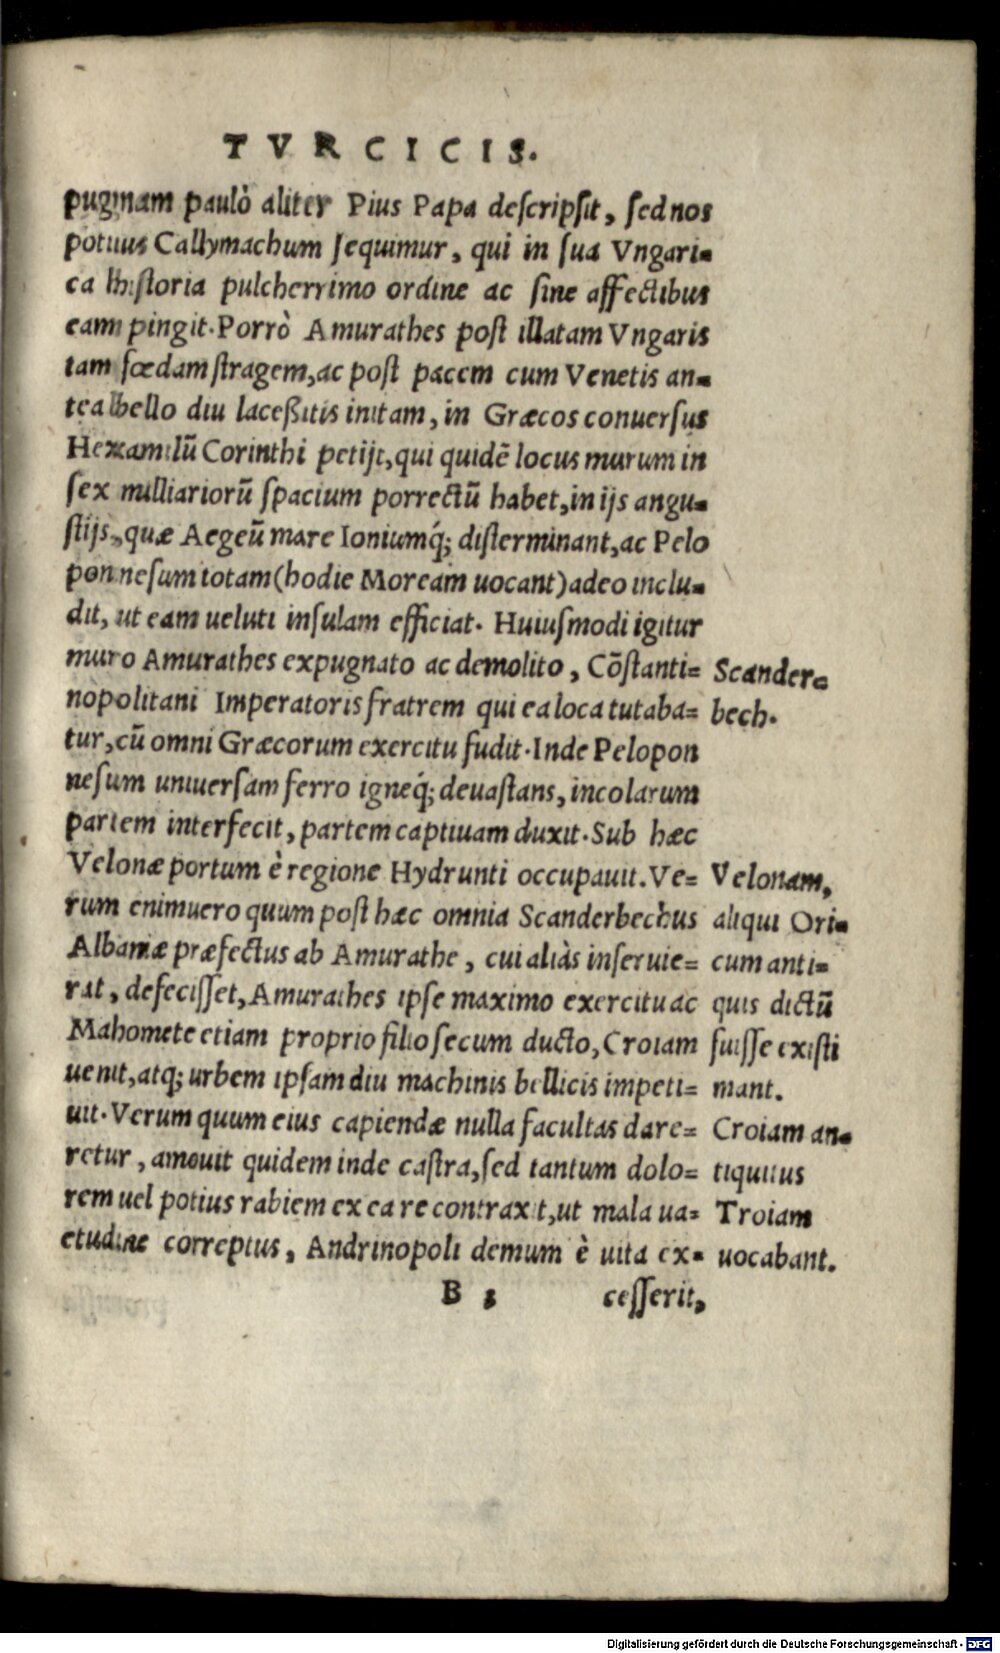 TVRCICIS.
pugnam paulò aliter Pius Papa descripsit, sed nos
potius Callymachum sequimur, qui in sua Vngari=
ca historia pulcherrimo ordine ac sine affectibus
eam pingit. Porrò Amurathes post illatam Vngaris
tam fœdam stragem, ac post pacem cum Venetis an=
tea bello diu laceßitis initam, in Græcos conuersus
Hexamilũ Corinthi petijt, qui quidẽ locus murum in
sex milliariorũ spacium porrectũ habet, in ijs angu=
stijs, quæ Aegeũ mare Ioniumq́; disterminant, ac Pelo
ponnesum totam (hodie Moream uocant) adeo inclu=
dit, ut eam ueluti insulam efficiat. Huiusmodi igitur
muro Amurathes expugnato ac demolito, Cõstanti=
nopolitani Imperatoris fratrem qui ea loca tutaba=
tur, cũ omni Græcorum exercitu fudit. Inde Pelopon
nesum uniuersam ferro igneq́; deuastans, incolarum
partem interfecit, partem captiuam duxit. Sub hæc
Velonæ portum è regione Hydrunti occupauit. Ve=
rum enimuero quum post hæc omnia Scanderbechus
Albaniæ præfectus ab Amurathe, cui aliàs inseruie=
rat, defecisset, Amurathes ipse maximo exercitu ac
Mahomete etiam proprio filio secum ducto, Croiam
uenit, atq; urbem ipsam diu machinis bellicis impeti=
uit. Verum quum eius capiendæ nulla facultas dare=
retur, amouit quidem inde castra, sed tantum dolo=
rem uel potius rabiem ex ea re contraxit, ut mala ua=
etudine correptus, Andrinopoli demum è uita ex=
B 3 cesserit,
Scander=
bech.
Velonam,
aliqui Ori=
cum anti=
quis dictũ
fuisse existi
mant.
Croiam an=
tiquitus
Troiam
uocabant.
Digitalisierung gefördert durch die Deutsche Forschungsgemeinschaft - DFG